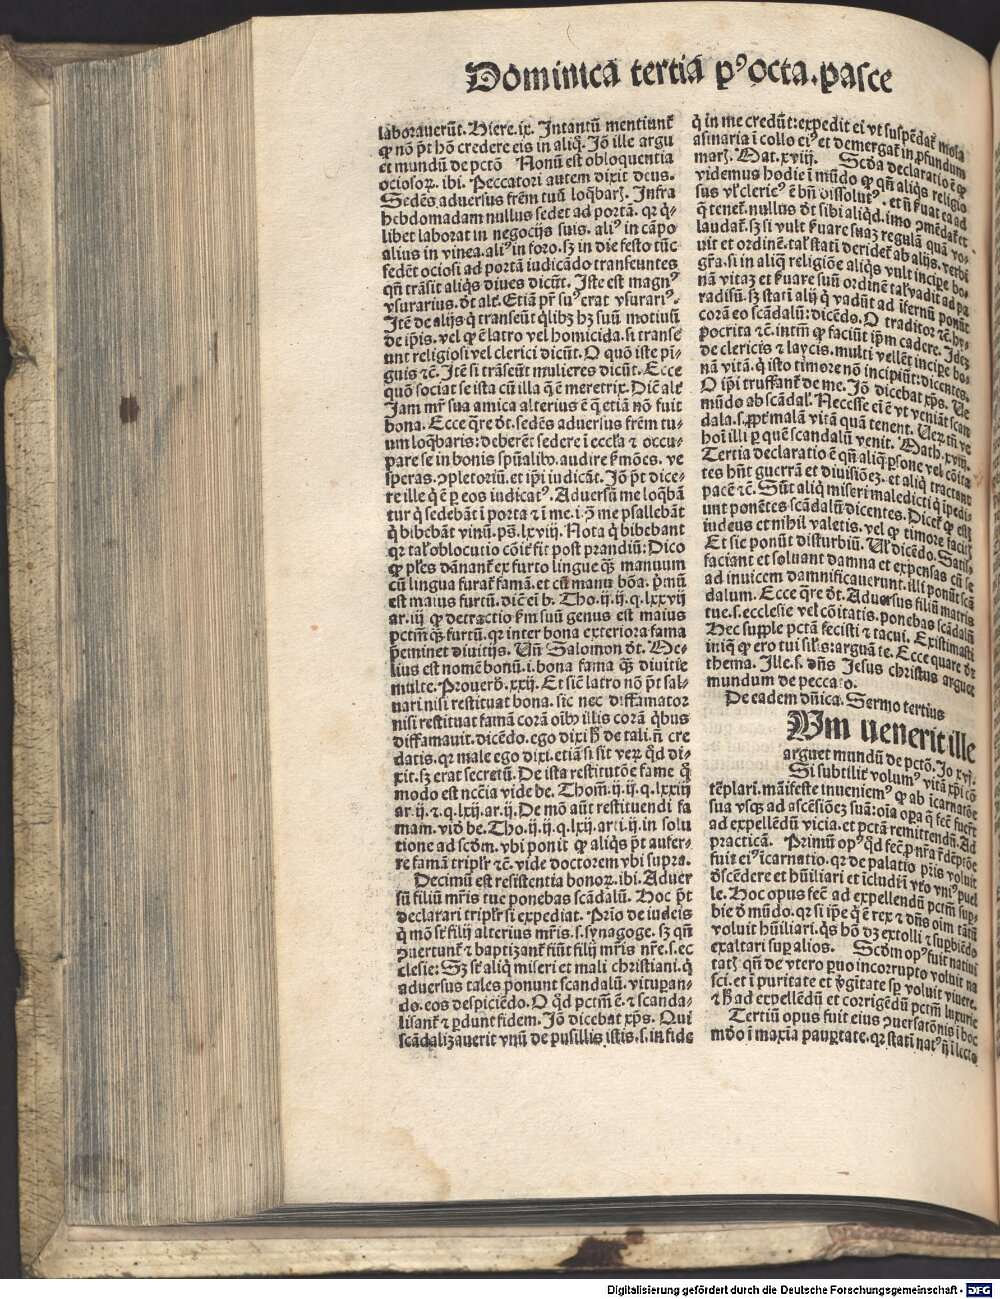 Dominica tertiā pꝰ octa. pasce
laborauerūt. Hiere. ix. Intantū mentiunt̄
ꝙ nō pōt hō credere eis in aliq̄. Jō ille argu
et mundū de pctō Nonū est obloquentia
ociosoꝝ. ibi. Peccatori autem dixit deus.
Sedēs aduersus frēm tuū loq̄barꝭ. Infra
hebdomadam nullus sedet ad portā. qꝛ q̄-
libet laborat in negocijs suis. aliꝰ in cāpo
alius in vinea. aliꝰ in foro. sꝫ in die festo tūc
sedēt ociosi ad portā iudicādo transeuntes
qn̄ trāsit aliqs diues dicūt. Iste est magnꝰ
vsurarius. dt̄ alē. Etiā pr̄ suꝰ erat vsurariꝰ.
Itē de alijs q̄ transeūt q̄libꝫ hꝫ suū motiuū
de ip̄is. vel ꝙ ē latro vel homicida. si transe
unt religiosi vel clerici dicūt. O quō iste pi-
guis ⁊c̄. Itē si trāseūt mulieres dicūt. Ecce
quō sociat se ista cū illa q̄ ē meretrix. Dic̄ alē
Jam mr̄ sua amica alterius ē q̄ etiā nō fuit
bona. Ecce q̄re dt̄. sedēs aduersus frēm tu-
um loq̄baris: deberēt sedere ī eccl̄a ⁊ occu-
pare se in bonis sp̄ualibꝰ. audire ẜmōes. ve
speras. ꝯpletoriū. et ip̄i iudicāt. Jō pōt dice-
re ille q̄ ē ꝑ eos iudicatꝰ. Aduersū me loq̄bā
tur q̄ sedebāt ī porta ⁊ ī me. i. ꝯ me psallebāt
q̄ bibebāt vinū. ps̄. lxviij. Nota q̄ bibebant
qꝛ tal̄ oblocutio cōit̄ fit post prandiū: Dico
ꝙ pl̄es dānant̄ ex furto lingue q̄ꝫ manuum
cū lingua furat̄ famā. et cū manu bōa. p̄mū
est maius furtū. dic̄ eī b. Tho. ij. ij. q. lxxvij
ar. iij ꝙ detractio ẜm suū genus est maius
pctm̄ q̄ꝫ furtū. qꝛ inter bona exteriora fama
p̄eminet diuitijs. Vn̄ Salomon dt̄. Me-
lius est nomē bonū. i. bona fama q̄ꝫ diuitie
multe. Prouerb̄. xxij. Et sic̄ latro nō pōt sal-
uari nisi restituat bona. sic nec diffamator
nisi restituat famā corā oībꝰ illis corā q̄bus
diffamauit. dicēdo. ego dixi ħ de tali. n̄ cre
datis. qꝛ male ego dixi. etiā si sit veꝝ q̄d di-
xit. sꝫ erat secretū. De ista restitutōe fame q̄
modo est nccīa vide be. Thom̄. ij. ij. q. lxxiij
ar. ij. ⁊ q. lxij. ar. ij. De mō aūt restituendi fa
mam. vid̄ be. Tho. ij. ij. q. lxij. arti. ij. in solu
tione ad scd̄m. vbi ponit ꝙ aliqs pōt aufer-
re famā triplr̄ ⁊c̄. vide doctorem vbi supra.
Decimū est resistentia bonoꝝ. ibi. Aduer
sū filiū mr̄is tue ponebas scādalū. Hoc pōt
declarari triplr̄ si expediat. Prīo de iudeis
q̄ mō sēt filij alterius mr̄is. s. synagoge. sꝫ qn̄
ꝯuertunt̄ ⁊ baptizant̄ fiūt filij mr̄is nr̄e. s. ec
clesie: Sꝫ sēt aliq̄ miseri et mali christiani. q̄
aduersus tales ponunt scandalū. vituperan-
do. eos despiciēdo. O q̄d pctm̄ ē. ⁊ scanda-
lisant̄ ⁊ ꝑdunt fidem. Jō dicebat xp̄s. Qui
scādalizauerit vnū de pusillis istis. s. in fide
q̄ in me credūt: expedit ei vt suspēdat̄ mola
asinaria ī collo eiꝰ et demergat̄ in ꝓfundum
marꝭ. Mat. xviij. Scd̄a declaratio ē ꝙ
videmus hodie ī mūdo ꝙ qn̄ aliqs religio
sus vl̄ clericꝰ ē bn̄ dissolutꝰ. et n̄ ẜuat ea ad
q̄ tenet̄. nullus dt̄ sibi aliqd. imo ꝯmēdat̄ et
laudat̄. sꝫ si vult ẜuare suaꝫ regulā quā vo-
uit et ordinē. tal̄ stati deridet̄ ab alijs. verbi
gr̄a. si in aliq̄ religiōe aliqs vult incipe bo-
nā vitaꝫ et ẜuare suū ordinē tal̄ vadit ad pa
radisū. sꝫ statī alij q̄ vadūt ad īfernū ponūt
corā eo scādalū: dicēdo. O traditor ⁊c̄. hy-
pocrita ⁊c̄. intm̄ ꝙ faciūt ip̄m cadere. Ideꝫ
de clericis ⁊ laycis. multi vellēt incipe bo-
nā vitā. q̄ isto timore nō incipiūt: dicentes.
O ip̄i truffant̄ de me. Jō dicebat xp̄s. Ve
mūdo ab scādal̄. Necesse ei ē vt veniāt scan
dala. s. ꝓpt̄ malā vitā quā tenent. Veꝝtn̄ ve
hoī illi ꝑ quē scandalū venit. Math. xviij.
Tertia declaratio ē qn̄ aliq̄ ꝑsone vel cōita
tes hn̄t guerrā et diuisiōeꝫ. et aliq̄ tractant
pacē ⁊c̄. Sūt aliq̄ miseri maledicti q̄ īpedi-
unt ponētes scādalū dicentes. Dicet̄ ꝙ estꝭ
iudeus et nihil valetis. vel ꝙ timore facitꝭ
Et sic ponūt disturbiū. Vl̄ dicēdo. Satis-
faciant et soluant damna et expensas cū se
ad inuicem damnificauerunt. illi ponūt scā
dalum. Ecce q̄re dt̄. Aduersus filiū matris
tue. s. ecclesie vel cōitatis. ponebas scādalū
Hec supple pctā fecisti ⁊ tacui. Existimasti
iniq̄ ꝙ ero tui sil̄s: arguā te. Ecce quare dt̄
thema. Ille. s. dn̄s Jesus christus arguet
mundum de peccato.
De eadem dn̄ica. Sermo tertius
Cum uenerit ille
arguet mundū de pctō. Jo xvj.
Si subtilit̄ volumꝰ vitā xp̄i cō
tēplari. māifeste inueniemꝰ ꝙ ab īcarnatōe
sua vsqꝫ ad ascēsiōeꝫ suā: oīa oꝑa q̄ fec̄ fuerūt
ad expellēdū vicia. et pctā remittendū. Ad
practicā. Primū opꝰ q̄d fec̄ ꝓ nr̄a r̄dēptōe
fuit eiꝰ īcarnatio. qꝛ de palatio pr̄is voluit
d̄scēdere et hūiliari et īcludi ī vt̄o vniꝰ puel
le. Hoc opus fec̄ ad expellendū pctm̄ suꝑ-
bie d̄ mūdo. qꝛ si ip̄e q̄ ē rex ⁊ dn̄s oīm tātū
voluit hūiliari. q̄s hō dꝫ extolli ⁊ suꝑbiēdo
exaltari suꝑ alios. Scd̄m opꝰ fuit natiui
tatꝭ qn̄ de vtero ꝑuo incorrupto voluit na
sci. et ī puritate et v̄gītate sp̄ voluit viuere.
⁊ ħ ad expellēdū et corrigēdū pctm̄ luxurie
Tertiū opus fuit eius ꝯuersatōnis ī hoc
mūdo ī maxīa paupertate. qꝛ statī natꝰ n̄ ī lecto
Digitalisierung gefördert durch die Deutsche Forschungsgemeinschaft - DFG